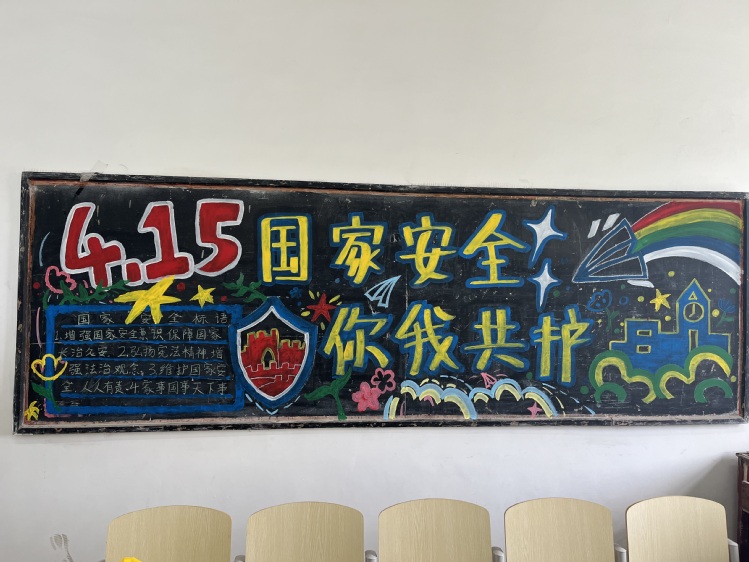 4.15
国家安全
你我共护
国家安全标语
1.增强国家安全意识保障国家
长治久安.2.弘扬宪法精神增
强法治观念.3.维护国家安
全.人人有责.4.家事国事天下事